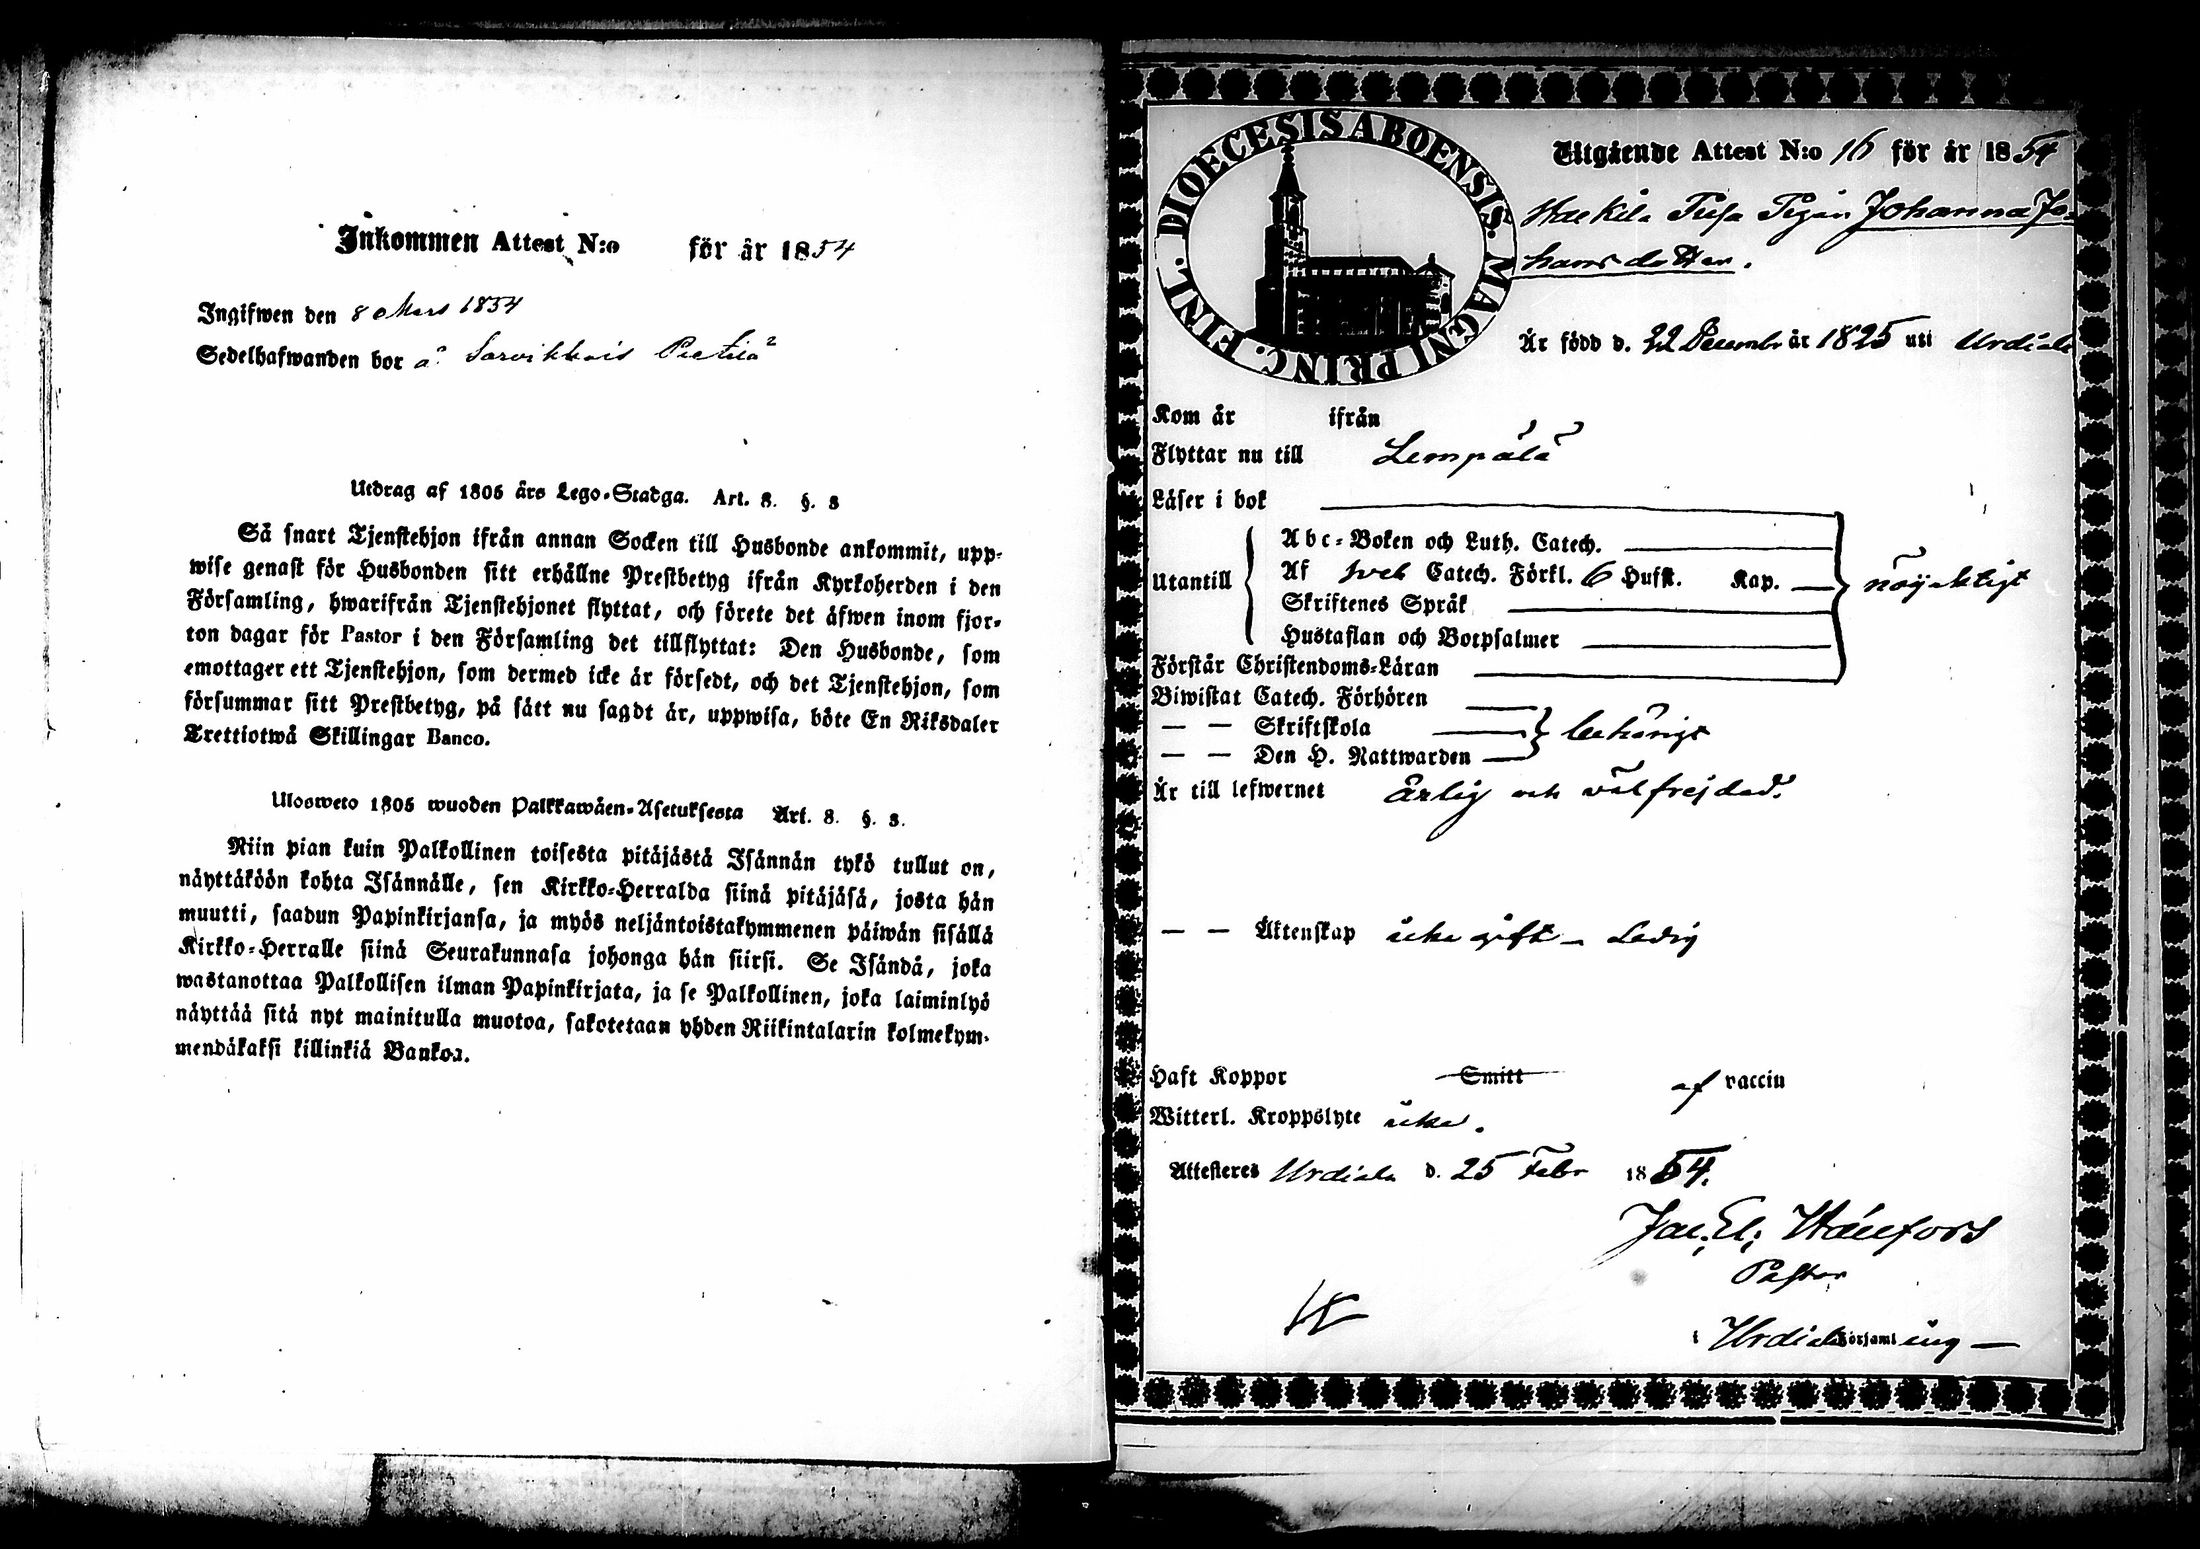 Inkommen Attest N:o för år 1854
Ingifwen den 8 Mars 1854
Sedelhafwanden bor å Sarvikkais Pietilä
Utdrag af 1805 års Lego-Stadga. Art. 8. §. 3
Så snart Tjenstehjon ifrån annan Socken till Husbonde ankommit, upp-
wise genast för Husbonden sitt erhållne Prestbetyg ifrån Kyrkoherden i den
Församling, hwarifrån Tjenstehjonet flyttat, och förete det äfwen inom fjor-
ton dagar för Pastor i den Församling det tillflyttat: Den Husbonde, som
emottager ett Tjenstehjon, som dermed icke är försedt, och det Tjenstehjon, som
försummar sitt Prestbetyg, på sätt nu sagdt är, uppwisa, böte En Riksdaler
Trettiotwå Skillingar Banco.
Ulosweto 1805 wuoden Palkkawäen-Asetuksesta Art. 8. §. 3.
Niin pian kuin Palkollinen toisesta pitäjästä Isännän tykö tullut on,
näyttäköön kohta Isännälle, sen Kirkko-Herralda siinä pitäjäsä, josta hän
muutti, saadun Papinkirjansa, ja myös neljäntoistakymmenen päiwän sisällä
Kirkko-Herralle siinä Seurakunnasa johonga hän siirsi. Se Isändä, joka
wastanottaa Palkollisen ilman Papinkirjata, ja se Palkollinen, joka laiminlyö
näyttää sitä nyt mainitulla muotoa, sakotetaan yhden Riikintalarin kolmekym-
mendäkaksi killinkiä Bankoa.
FINL. DIOECESIS ABOENSIS. MAGNI PRINC.
Utgående Attest N:o 16 för år 1854
Pigan Johanna Jo-
hansdotter.
Är född d. 22 Decemb. år 1825 uti Urdiala
Kom år ifrån
Flyttar nu till Lempälä
Läser i bok
Utantill Abc-Boken och Luth. Catech.
Af Sveb Catech. Förkl. 6 Hufst. Kap. — nöjaktigt
Skriftenes Språk
Hustaflan och Botpsalmer
Förstår Christendoms-Läran
Biwistat Catech. Förhören
— — Skriftskola behörigt
— — Den H. Nattwarden
Är till lefwernet ärlig och välfrejdad.
— — Äktenskap icke gift — Ledig
Haft Koppor Smitt af vaccin
Witterl. Kroppslyte icke.
Attesteres Urdiala d. 25 Febr 1854.
Jac. El. Hällfors
Pastor
i Urdiala Församling —